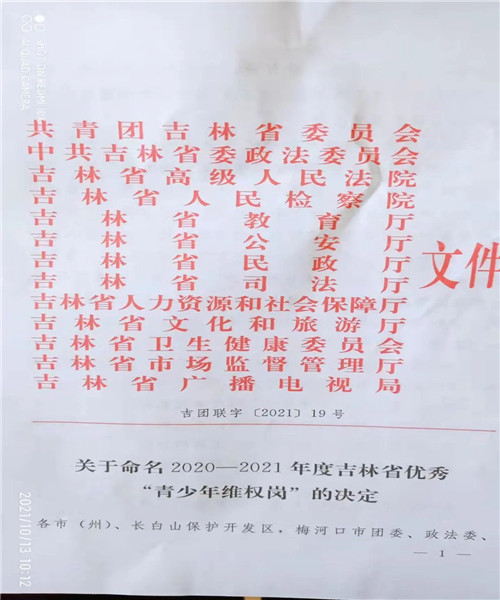 共青团吉林省委员会
中共吉林省委政法委员会
吉林省高级人民法院
吉林省人民检察院
吉林省教育厅
吉林省公安厅
吉林省民政厅
吉林省司法厅
吉林省人力资源和社会保障厅
吉林省文化和旅游厅
吉林省卫生健康委员会
吉林省市场监督管理厅
吉林省广播电视局
文件
吉团联字〔2021〕19号
关于命名2020—2021年度吉林省优秀
“青少年维权岗”的决定
各市（州）、长白山保护开发区，梅河口市团委、政法委、
— 1 —
2021/10/13 10:12
AI QUAD CAMERA